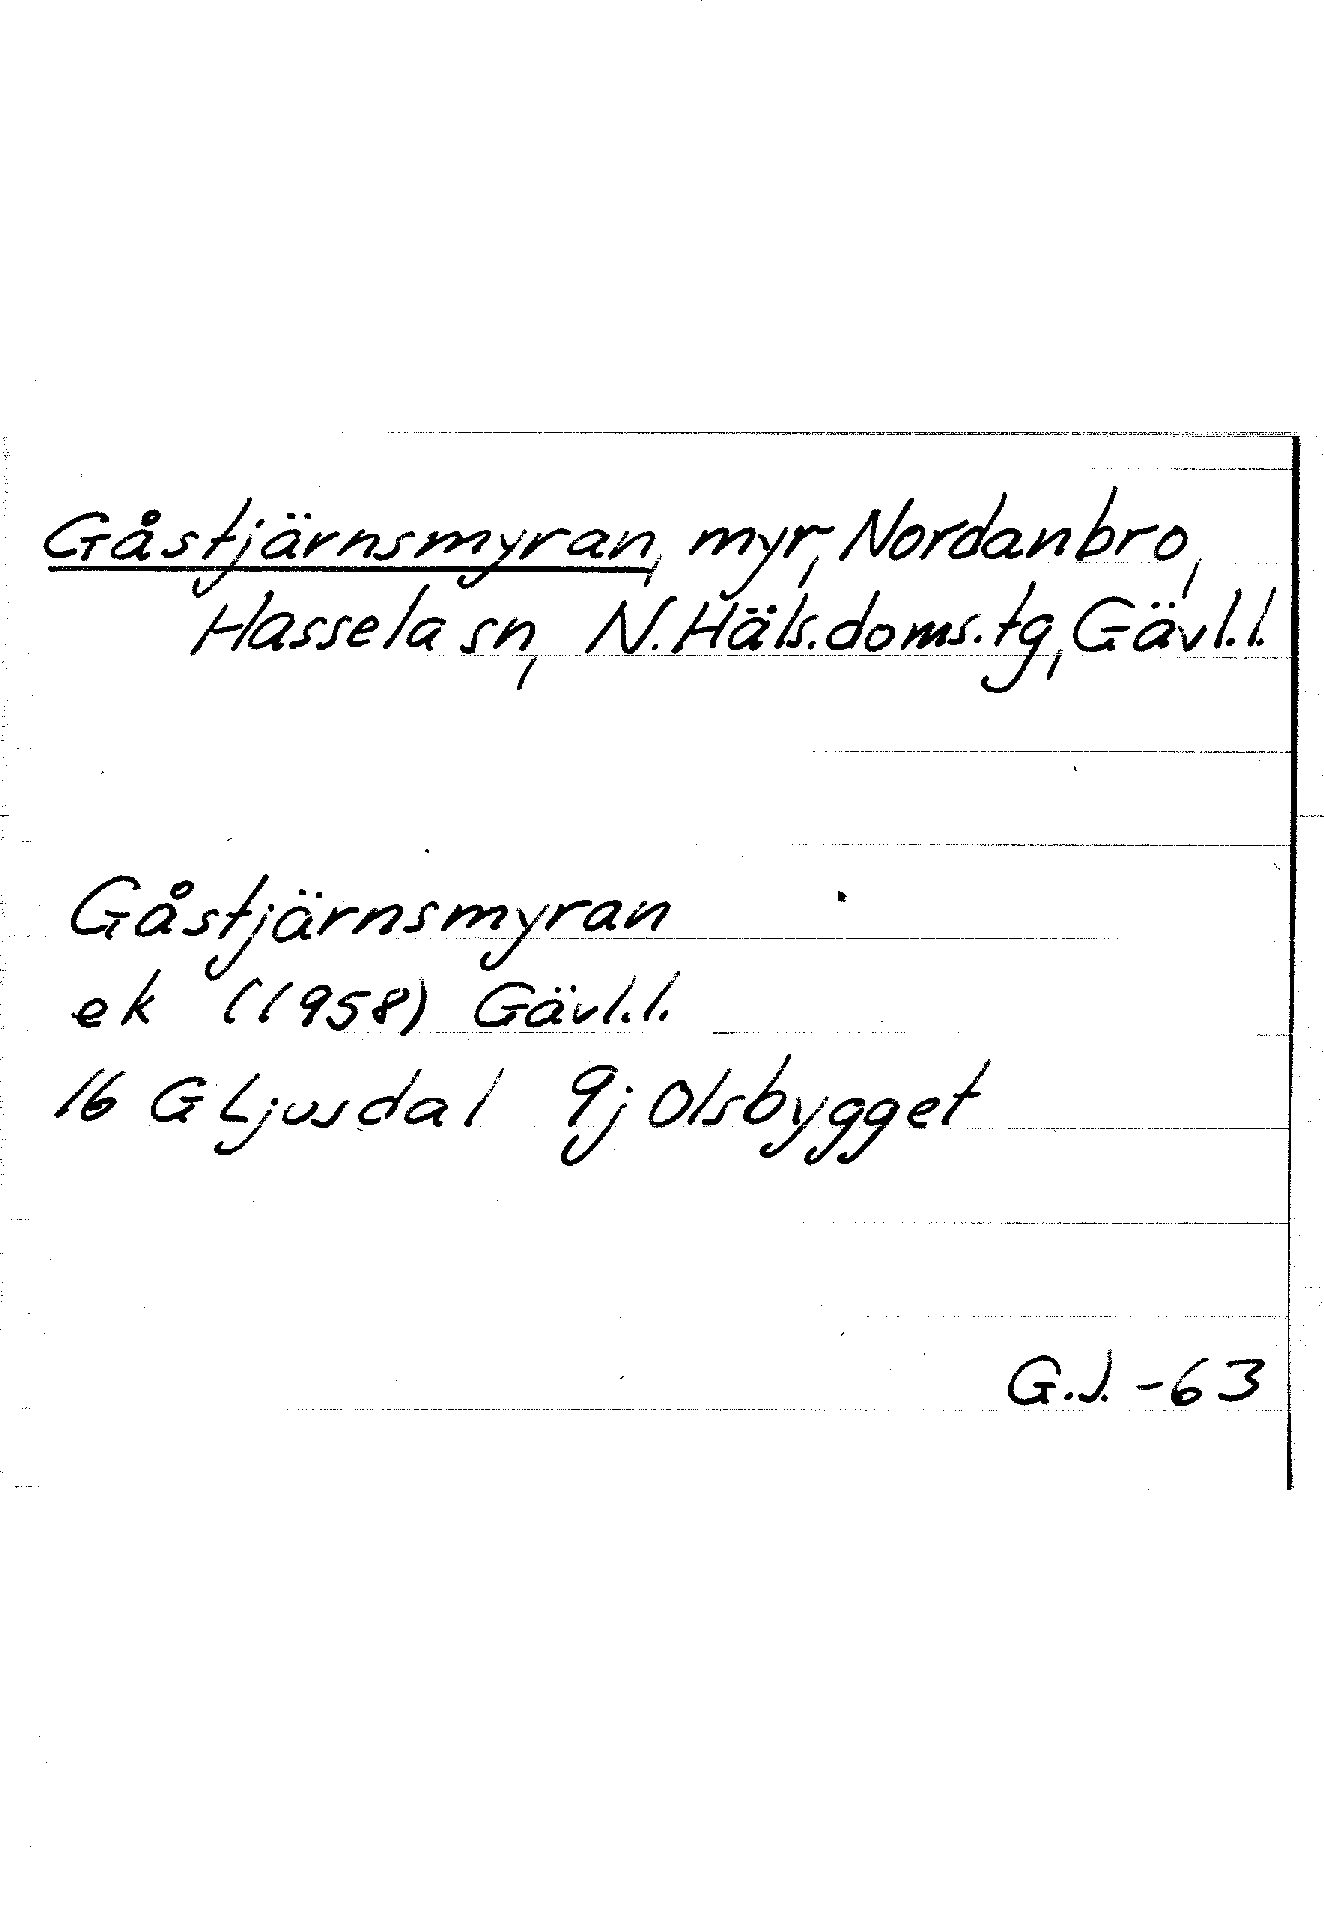 Gåstjärnsmyran, myr, Nordanbro,
Hassela sn, N. Häls. doms. tg, Gävl. l.
Gåstjärnsmyran
ek (1958) Gävl. l.
16 G Ljusdal 9j Olsbygget
G.J. -63